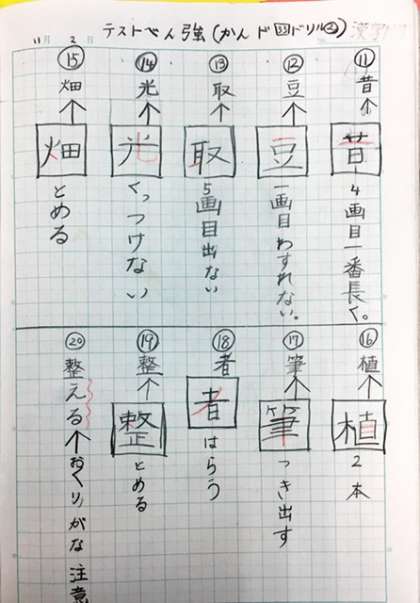 11月2日 テストべん強(かんド図ドリル②)漢字
⑪ 昔 昔 4画目一番長く。
⑫ 豆 豆 一画目わすれない。
⑬ 取 取 5画目出ない
⑭ 光 光 くっつけない
⑮ 畑 畑 とめる
⑯ 植 植 2本
⑰ 筆 筆 つき出す
⑱ 者 者 はらう
⑲ 整 整 とめる
⑳ 整える おくりがな注意